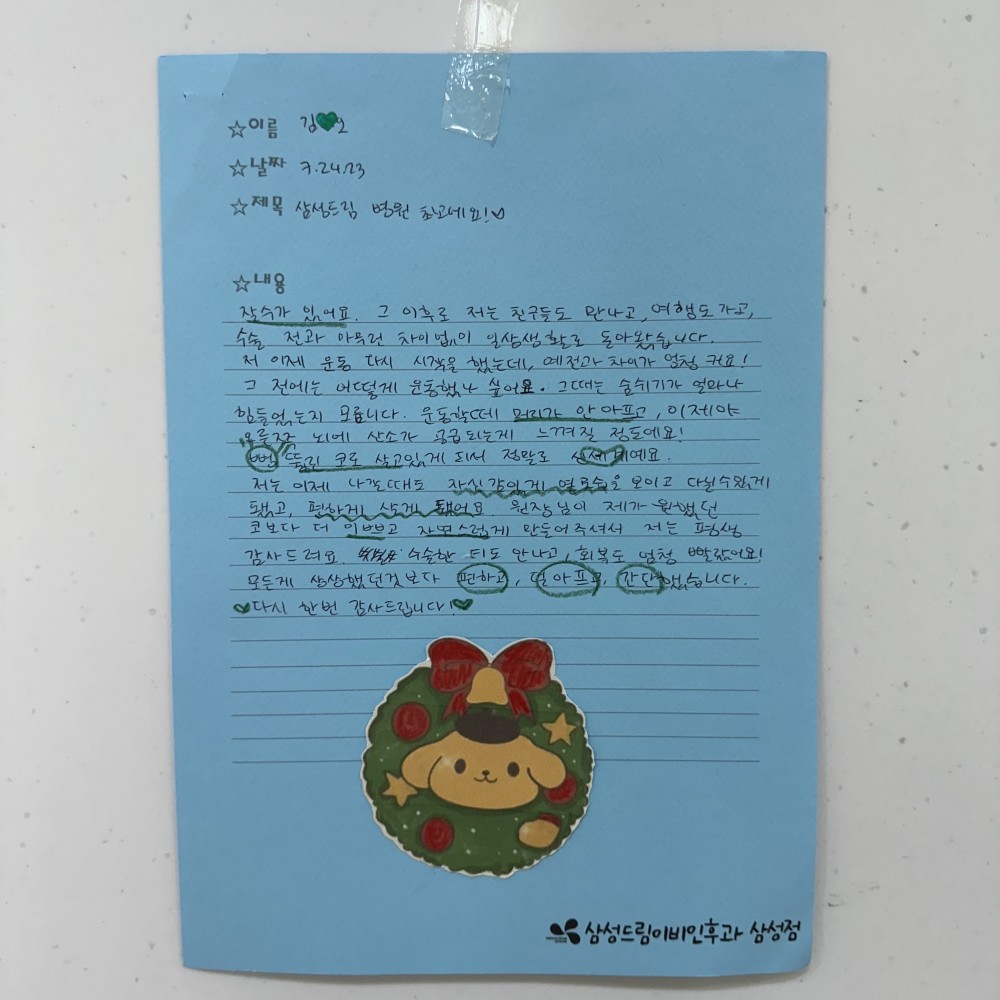 ☆이름 김💚오
☆날짜 7.24.23
☆제목 삼성드림 병원 최고예요!♡
☆내용
잘수가 있어요. 그 이후로 저는 친구들도 만나고, 여행도 가고,
수술 전과 아무런 차이없이 일상생활로 돌아왔습니다.
저 이제 운동 다시 시작을 했는데, 예전과 차이가 엄청 커요!
그 전에는 어떻게 운동했나 싶어요. 그때는 숨쉬기가 얼마나
힘들었는지 모릅니다. 운동할때 머리가 안아프고, 이제야
오른쪽 뇌에 산소가 공급되는게 느껴질 정도예요!
뻥 뚫린 코로 살고있게 되서 정말로 예요.
저는 이제 나갈때도 자신감있게 옆모습을 보이고 다닐수있게
됐고, 편하게 살게 됐어요. 원장님이 제가 원했던
코보다 더 이쁘고 자연스럽게 만들어주셔서 저는 평생
감사드려요. 수술한 티도 안나고, 회복도 엄청 빨랐어요!
모든게 상상했던것보다 편하고, 덜 아프고, 간단했습니다.
♥다시 한번 감사드립니다!♥
삼성드림이비인후과 삼성점